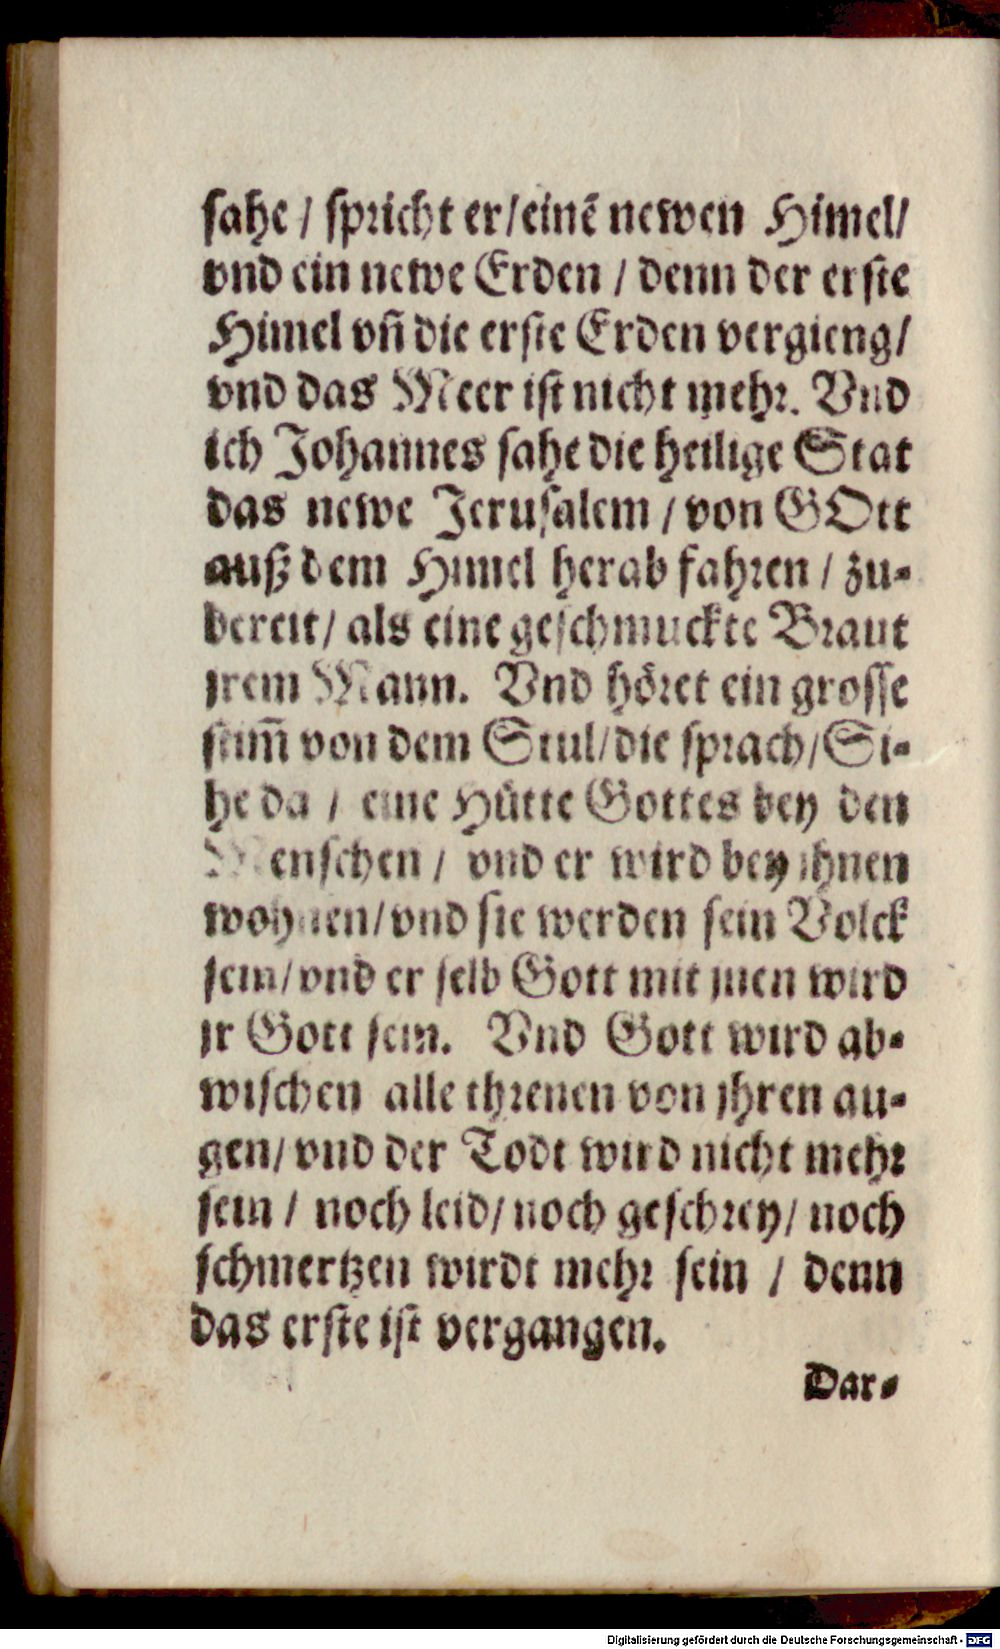 sahe / spricht er/einẽ newen Himel/
vnd ein newe Erden / denn der erste
Himel vñ die erste Erden vergieng/
vnd das Meer ist nicht mehr. Vnd
ich Johannes sahe die heilige Stat
das newe Jerusalem / von GOtt
auß dem Himel herab fahren / zu-
bereit/ als eine geschmuckte Braut
jrem Mann. Vnd höret ein grosse
stim̃ von dem Stul/die sprach/Si-
he da / eine Hütte Gottes bey den
Menschen / vnd er wird bey jhnen
wohnen/vnd sie werden sein Volck
sein/vnd er selb Gott mit jnen wird
jr Gott sein. Vnd Gott wird ab-
wischen alle threnen von jhren au-
gen/vnd der Todt wird nicht mehr
sein / noch leid/noch geschrey/ noch
schmertzen wirdt mehr sein / denn
das erste ist vergangen.
Dar-
Digitalisierung gefördert durch die Deutsche Forschungsgemeinschaft - DFG